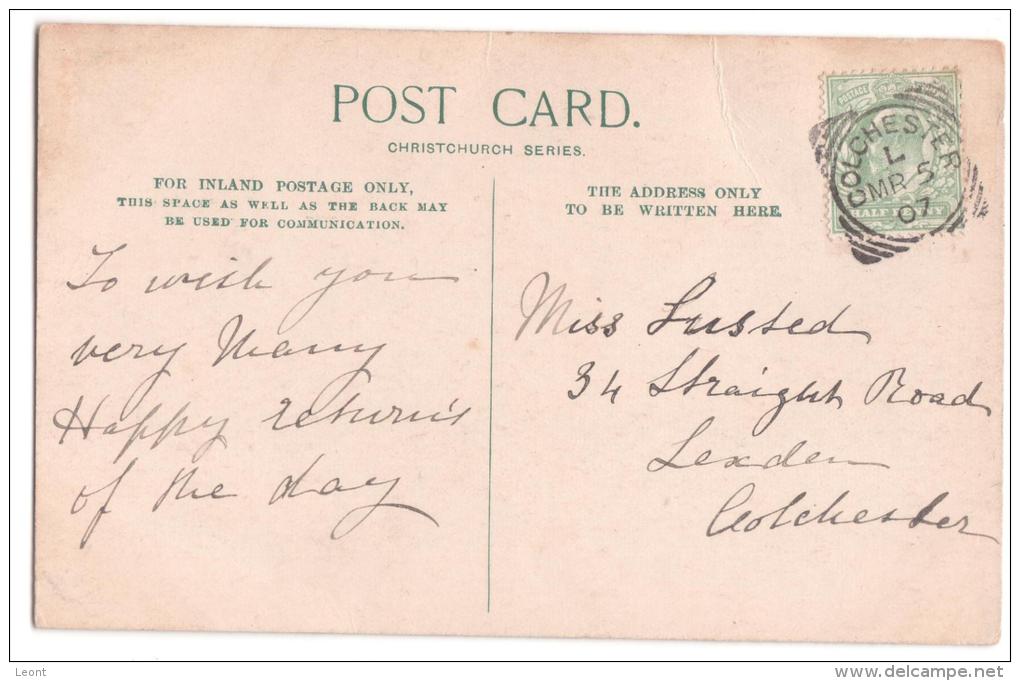 POST CARD.
CHRISTCHURCH SERIES.
FOR INLAND POSTAGE ONLY,
THIS SPACE AS WELL AS THE BACK MAY
BE USED FOR COMMUNICATION.
THE ADDRESS ONLY
TO BE WRITTEN HERE.
POSTAGE
HALF PENNY
COLCHESTER
L
MR 5
07
To wish you
very Many
Happy return's
of the day
Miss Lusted
34 Straight Road
Lexden
Colchester
Leont
www.delcampe.net